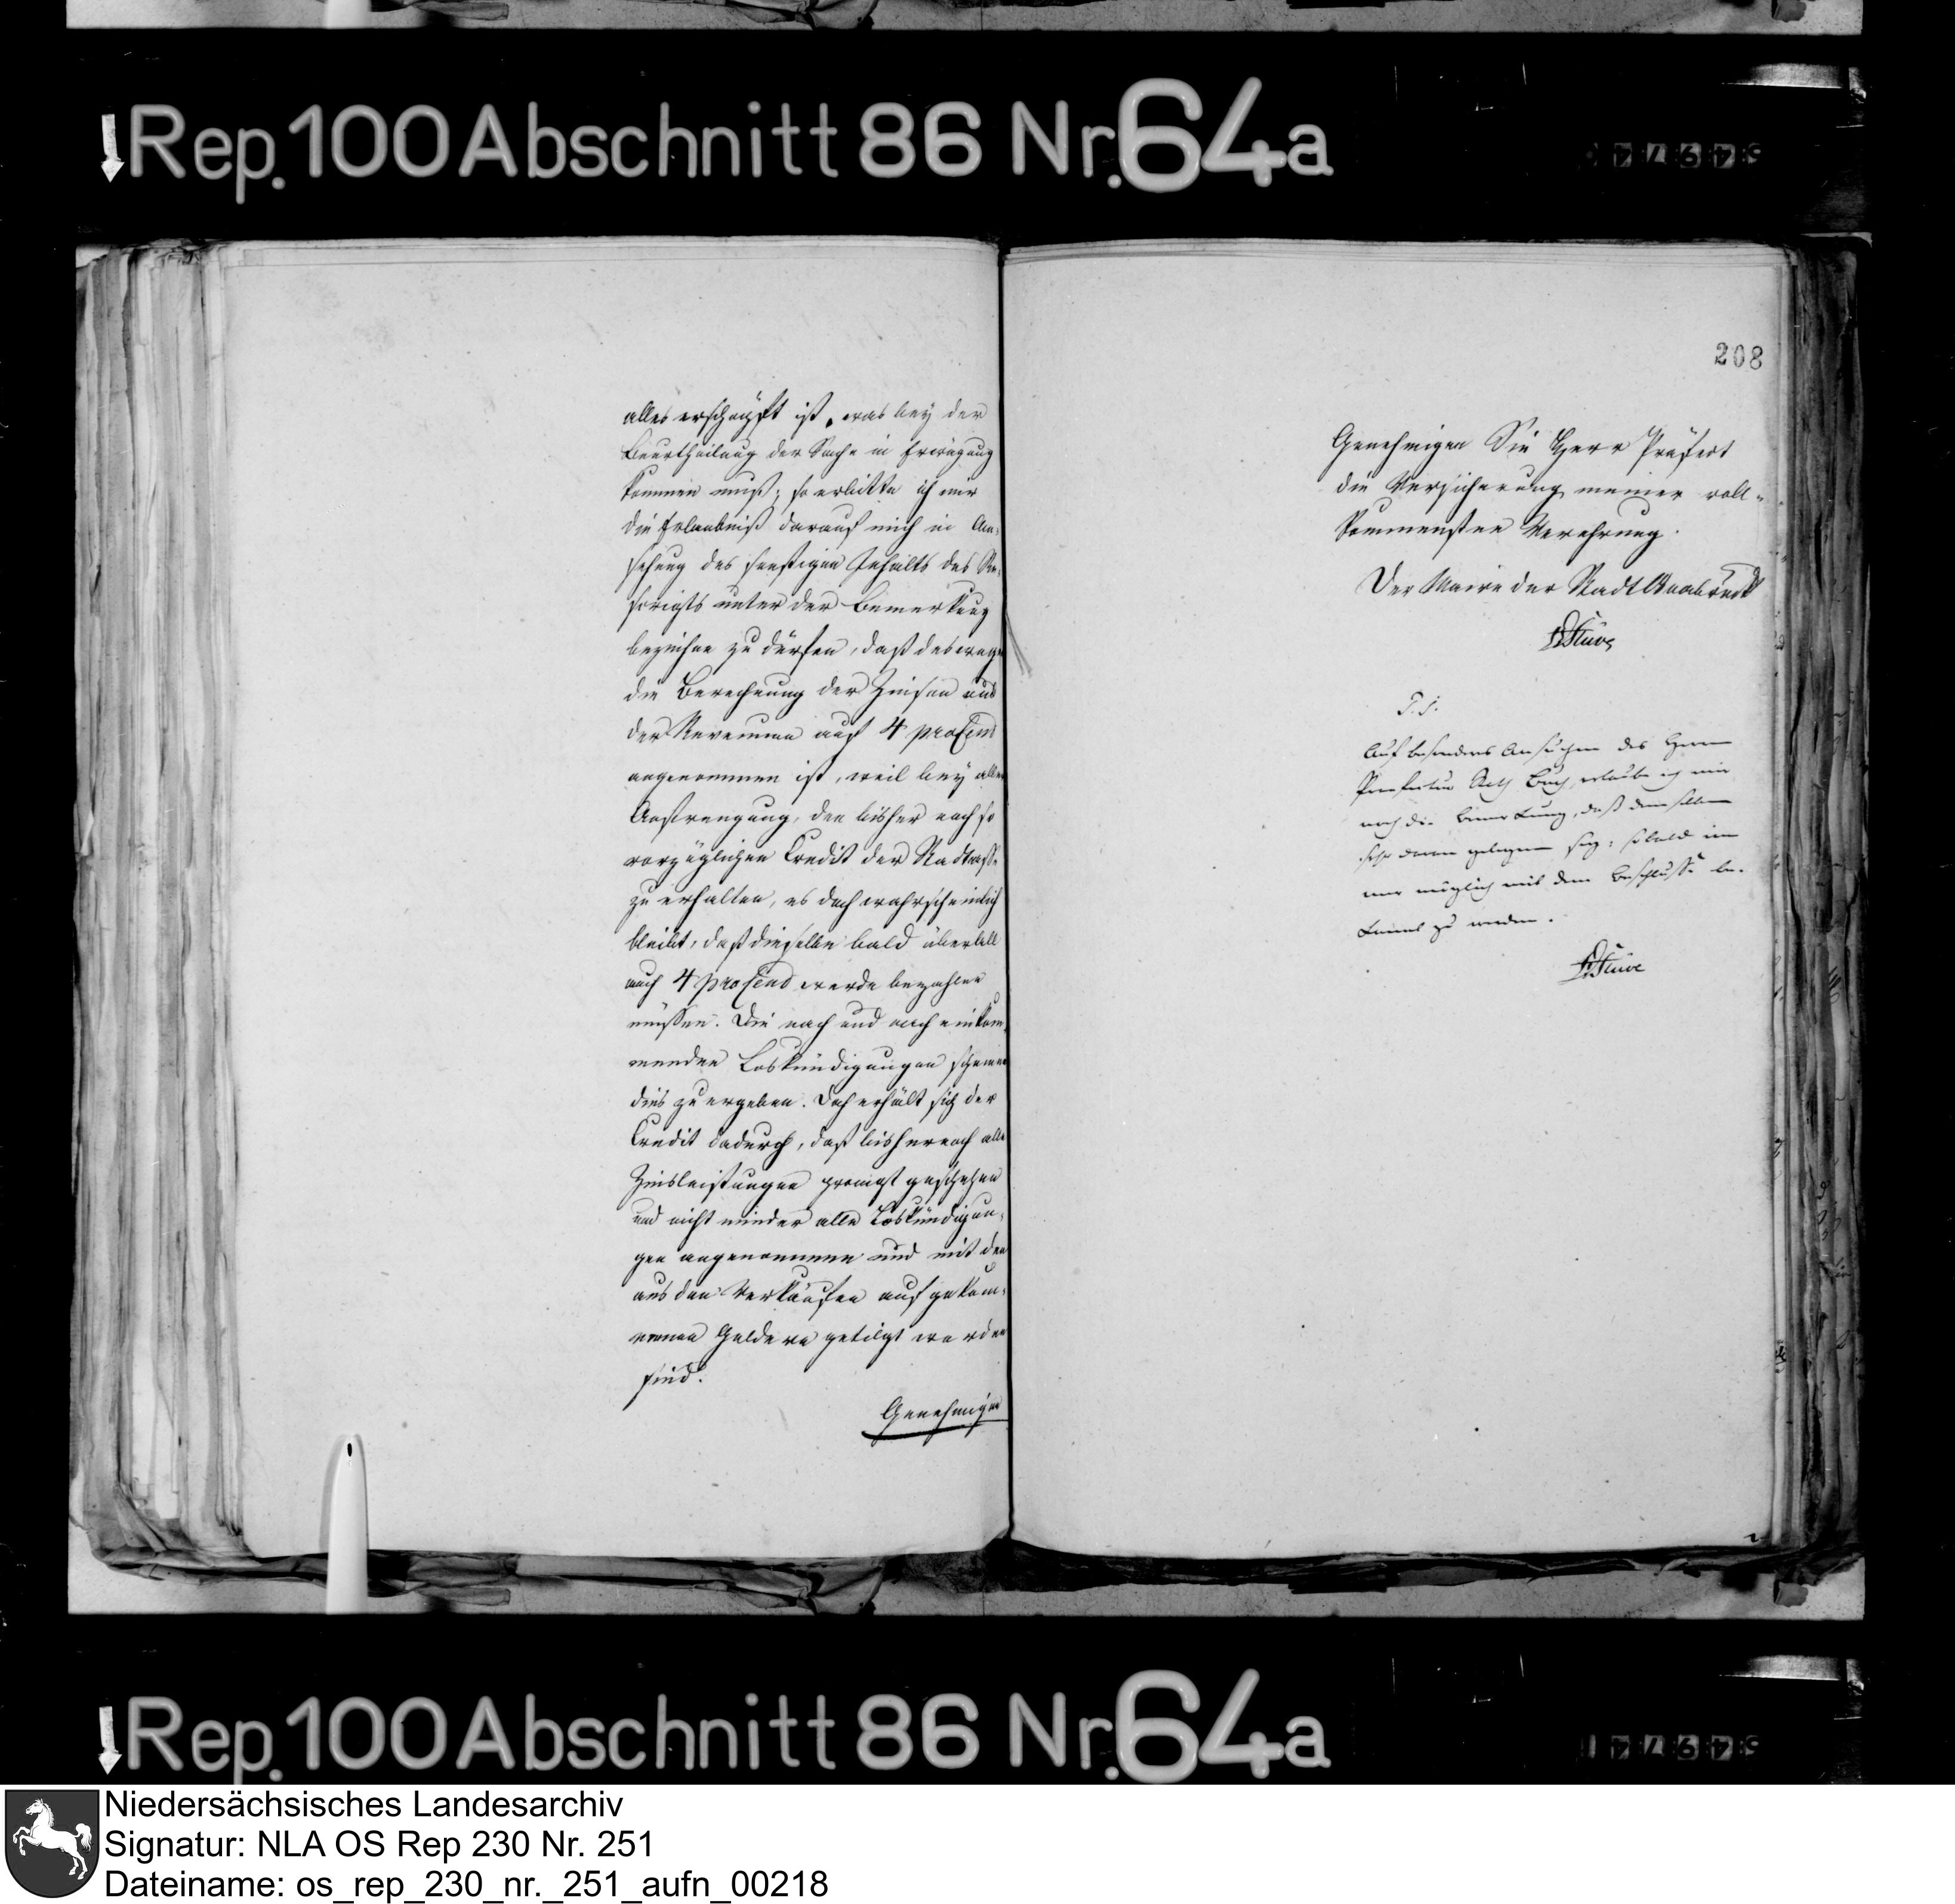 Rep. 100 Abschnitt 86 Nr. 64a
alles erschöpft ist, was bey der
Beurtheilung der Sache in Erwägung
kommen muß; so erbitte ich mir
die Erlaubniß darauf mich in An-
sehung des sonstigen Inhalts des Re-
scripts unter der Bemerkung
beziehen zu dürfen, daß deswegen
die Berechnung der Zinsen und
der Revenuen auf 4 proCent
angenommen ist, weil bey aller
Anstrengung, den bisher noch so
vorzüglichen Credit der Stadtcasse
zu erhalten, es doch wahrscheinlich
bleibt, daß dieselbe bald überall
auch 4 proCent werde bezahlen
müssen. Die nach und nach einkom-
menden Loskündigungen scheinen
dies zu ergeben. Doch erhält sich der
Credit dadurch, daß bisher noch alle
Zinsleistungen prompt geschehen
und nicht minder alle Loskündigun-
gen angenommen und mit den
aus den Verkäufen aufgekom-
menen Geldern getilgt worden
sind.
Genehmigen
208
Genehmigen Sie Herr Präfect
die Versicherung meiner voll-
kommensten Verehrung.
Der Maire der Stadt Osnabrück
Stüve
P.S.
Auf besonders Ansuchen des Herrn
Praefectur Rath Buch, erlaube ich mir
noch die Bemerkung, daß demselben
sehr daran gelegen sey: sobald im-
mer möglich mit dem Beschlusse be-
kannt zu werden.
Stüve
Rep. 100 Abschnitt 86 Nr. 64a
Niedersächsisches Landesarchiv
Signatur: NLA OS Rep 230 Nr. 251
Dateiname: os_rep_230_nr._251_aufn_00218